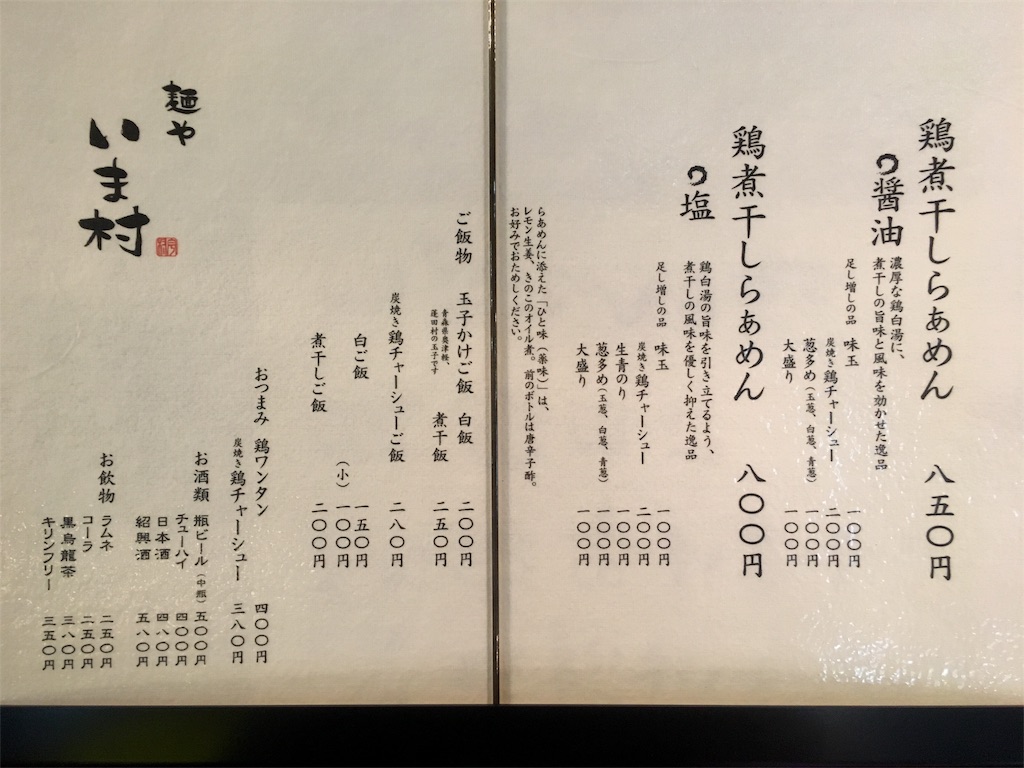 鶏煮干しらぁめん 八五〇円
醤油
濃厚な鶏白湯に、
煮干しの旨味と風味を効かせた逸品
足し増しの品 味玉 一〇〇円
炭焼き鶏チャーシュー 二〇〇円
葱多め（玉葱、白葱、青葱） 一〇〇円
大盛り 一〇〇円
鶏煮干しらぁめん 八〇〇円
塩
鶏白湯の旨味を引き立てるよう、
煮干しの風味を優しく抑えた逸品
足し増しの品 味玉 一〇〇円
炭焼き鶏チャーシュー 二〇〇円
生青のり 一〇〇円
葱多め（玉葱、白葱、青葱） 一〇〇円
大盛り 一〇〇円
らぁめんに添えた「ひと味（薬味）」は、
レモン生姜、きのこのオイル煮。前のボトルは唐辛子酢。
お好みでおためしください。
ご飯物 玉子かけご飯 白飯 二〇〇円
煮干飯 二五〇円
青森県奥津軽、
蓬田村の玉子です
炭焼き鶏チャーシューご飯 二八〇円
白ご飯 一五〇円
（小） 一〇〇円
煮干しご飯 二〇〇円
おつまみ 鶏ワンタン 四〇〇円
炭焼き鶏チャーシュー 三八〇円
お酒類 瓶ビール（中瓶） 五〇〇円
チューハイ 四〇〇円
日本酒 四八〇円
紹興酒 五八〇円
お飲物 ラムネ 二五〇円
コーラ 二五〇円
黒烏龍茶 三八〇円
キリンフリー 三五〇円
麺や
いま村